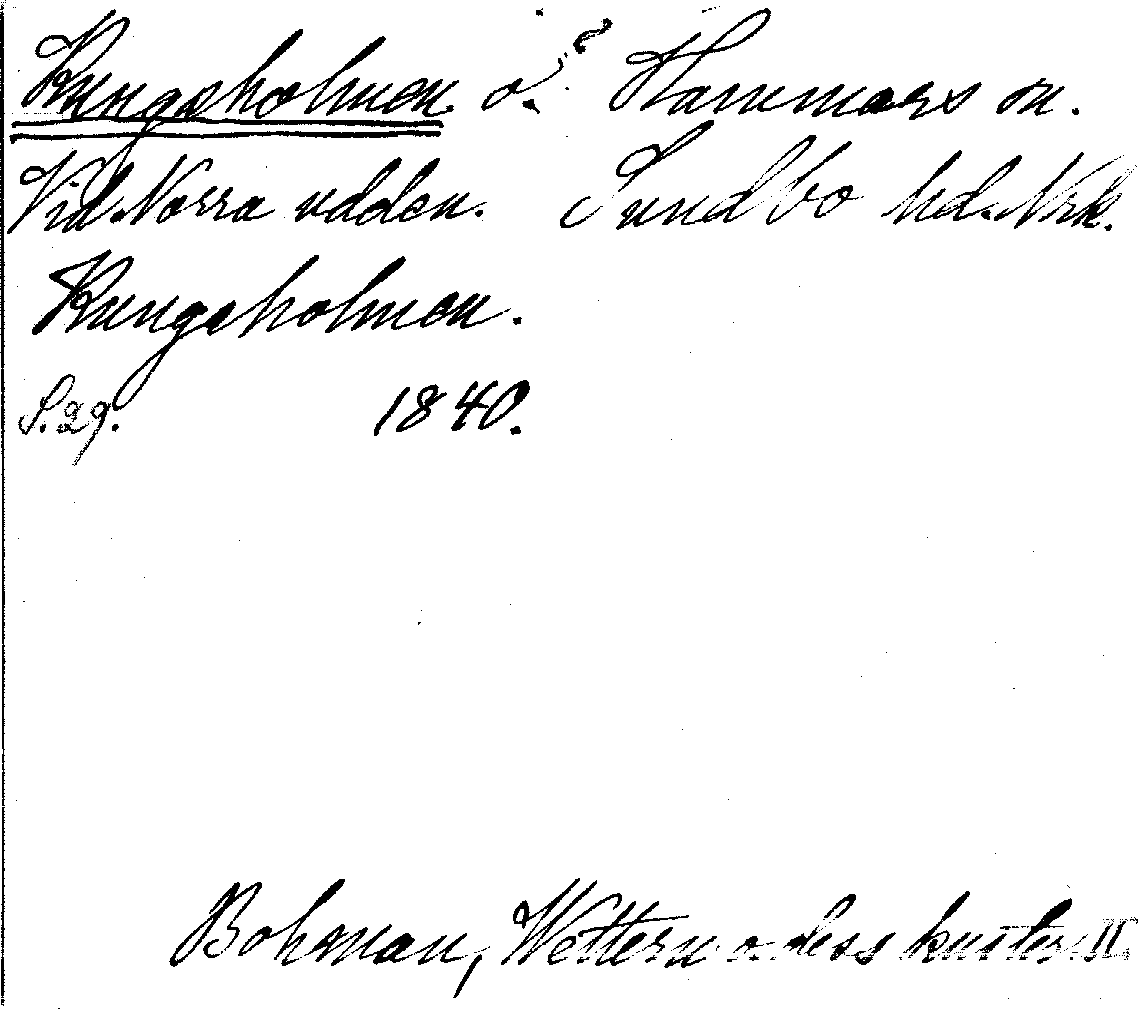 Kungsholmen. ö.? Hammars sn.
Vid Norra udden. Sundbo hd. Nrk.
Kungsholmen.
S. 29. 1840.
Bohman, Wettern o. dess kuster II